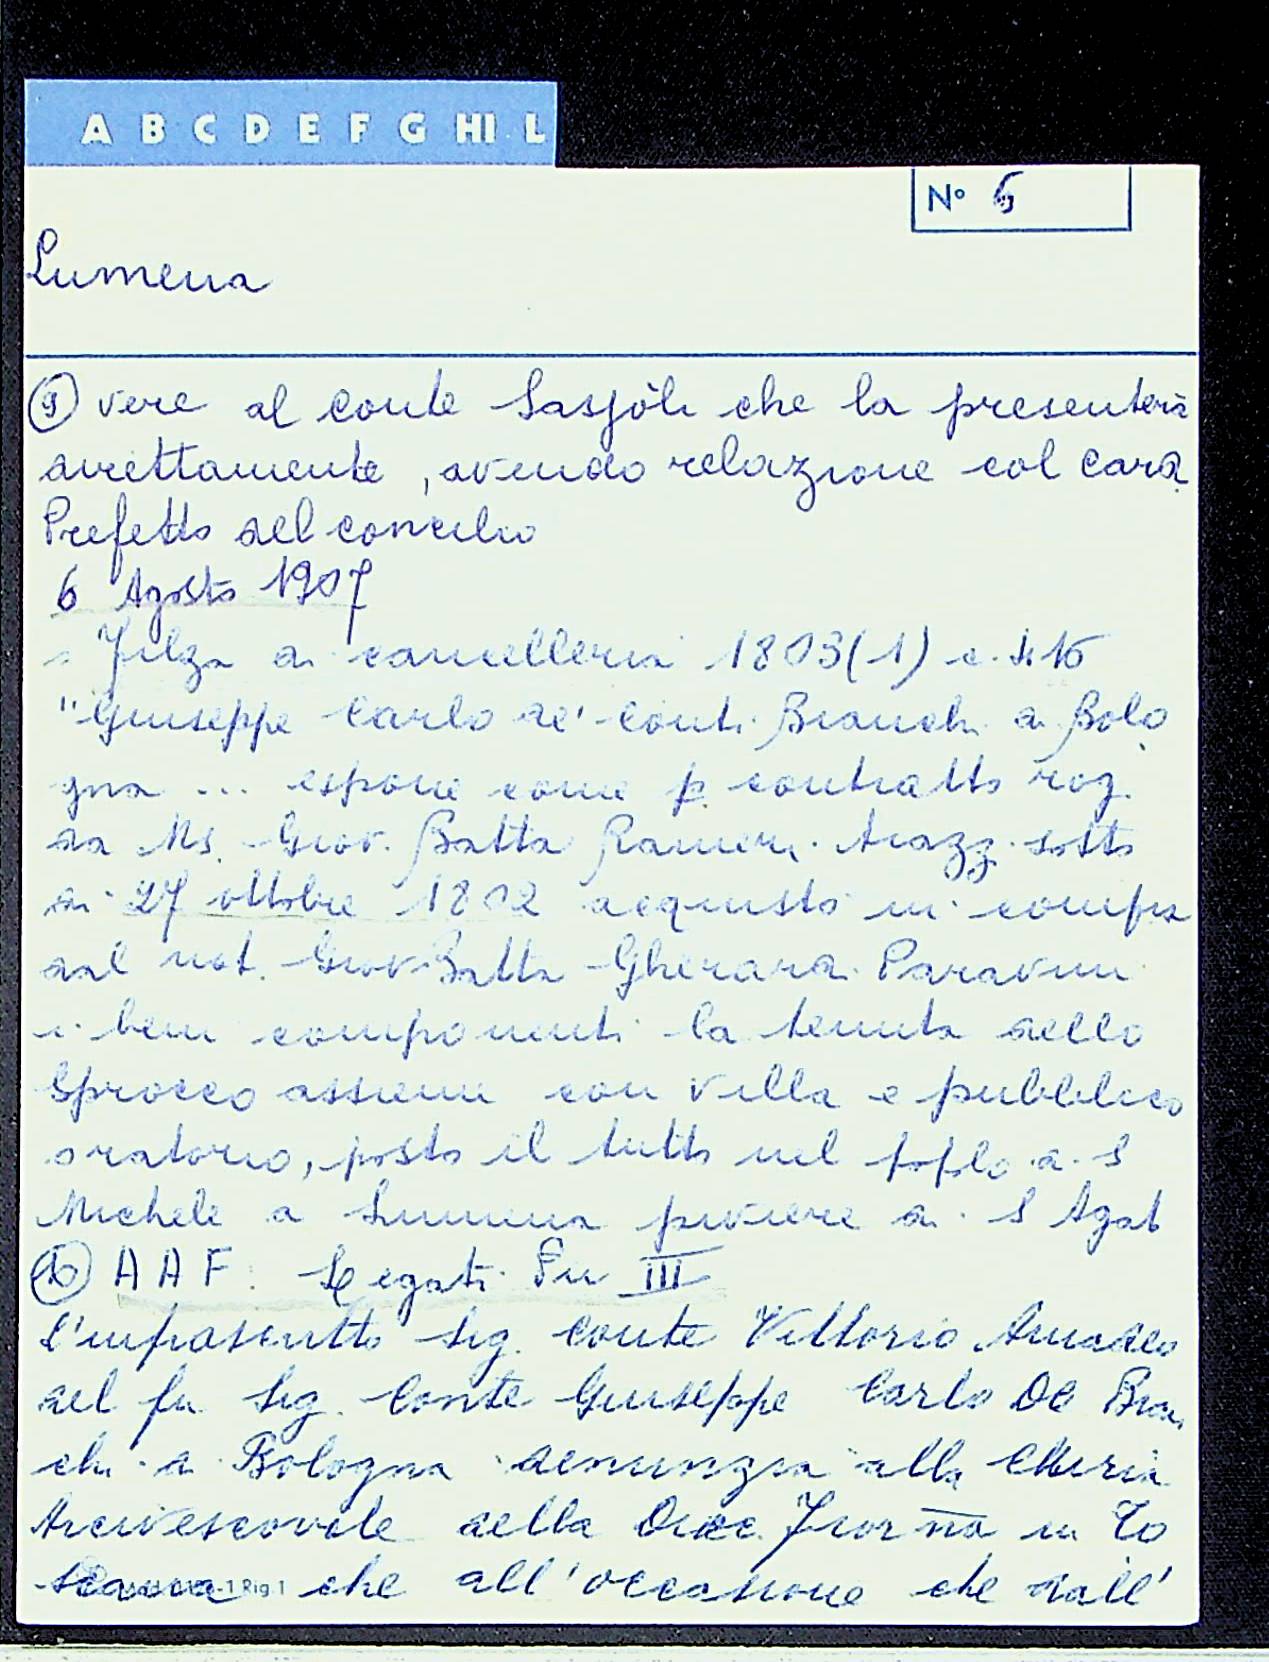 A B C D E F G HI L
N° 6
Lumena
9 vere al conte Sasjòli che la presenterà
direttamente, avendo relazione col card.
Prefetto del concilio
6 Agosto 1907
Filza di cancelleria 1803(1) c. 416
"Giuseppe Carlo de' Conti Bianchi di Bolo
gna ... espone come p. contratto rog.
da Ms. Giov. Batta Ranieri. Arazz. sotto
di 27 ottobre 1802 acquistò in compra
dal not. Giov Batta Gherardi Paravini
i beni componenti la tenuta dello
Sprocco assieme con villa e pubblico
oratorio, posto il tutto nel poplo di S
Michele a Lumena piviere di S Agat
10 AAF. Legati Pu III
L'infrascritto Sig. Conte Vittorio Amadeo
del fu Sig. Conte Giuseppe Carlo De Bian
chi di Bologna denunzia alla Curia
Arcivescovile della Dioc. Fiorna in To
scana che all'occasione che dall'
-1 Rig.1